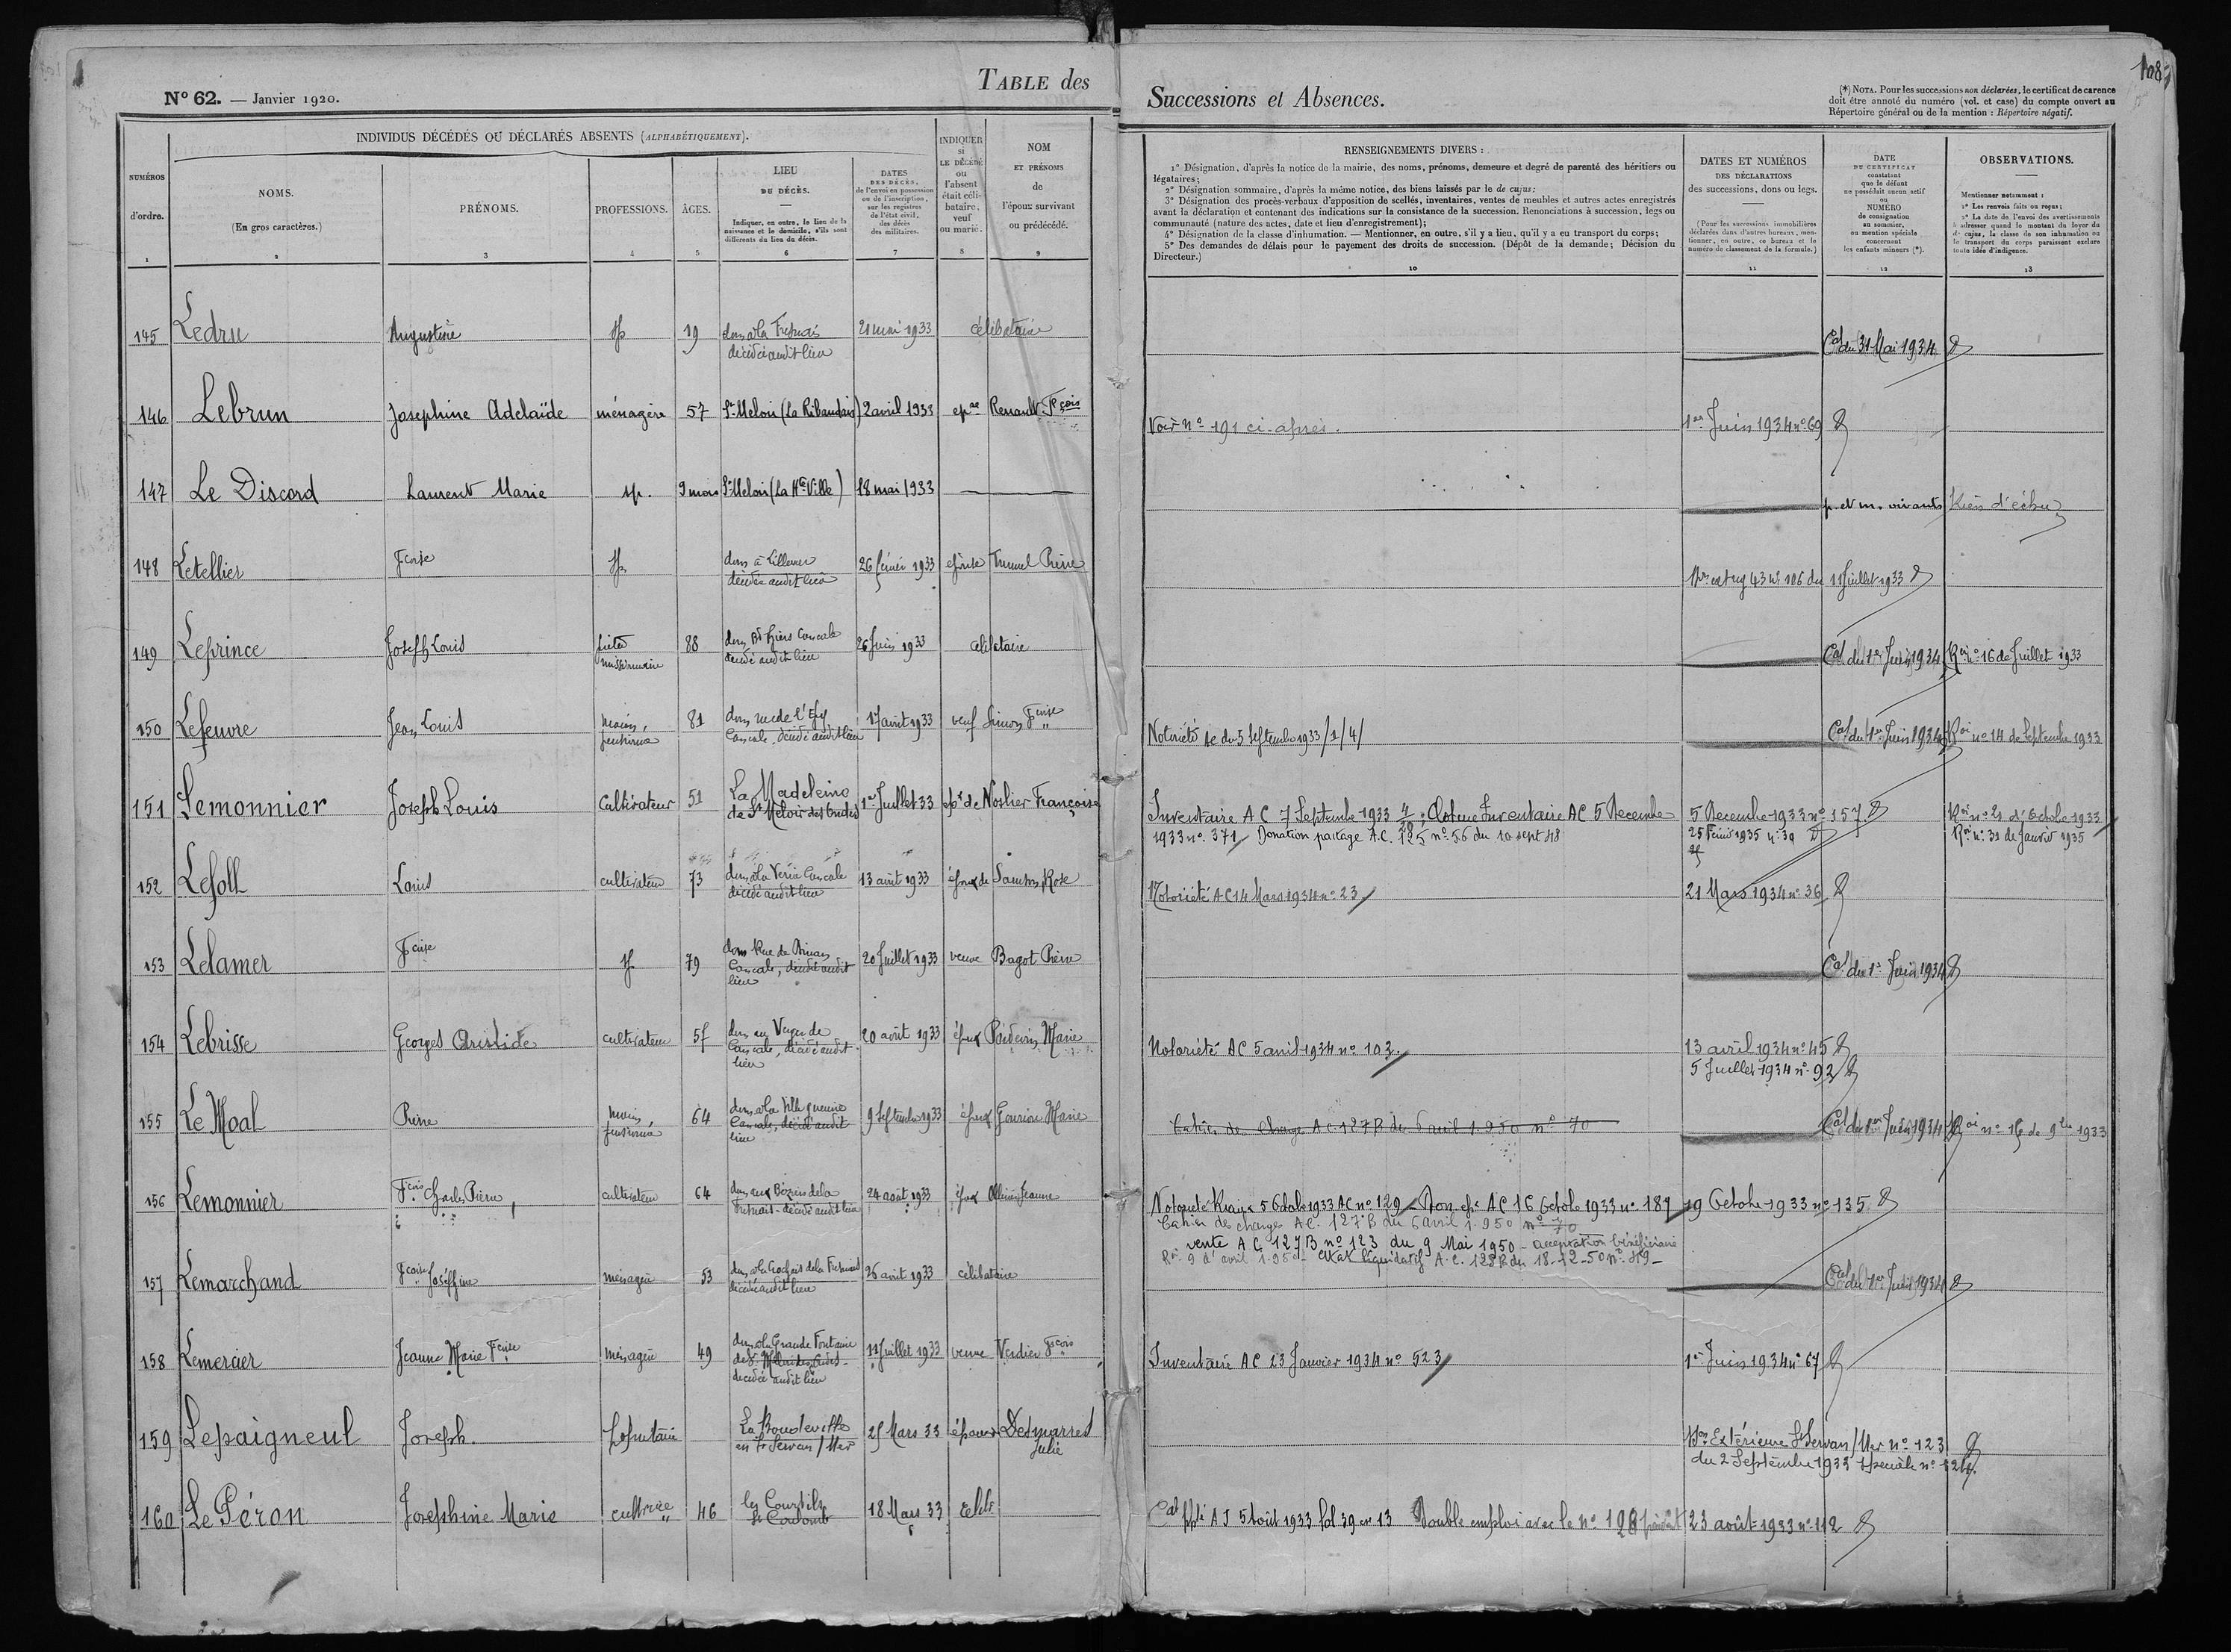 108
N° 62. — Janvier 1920.
TABLE des
Successions et Absences.
(*) NOTA. Pour les successions non déclarées, le certificat de carence
doit être annoté du numéro (vol. et case) du compte ouvert au
Répertoire général ou de la mention : Répertoire négatif.
INDIVIDUS DÉCÉDÉS OU DÉCLARÉS ABSENTS (ALPHABÉTIQUEMENT).
NUMÉROS
d'ordre.
1
NOMS.
(En gros caractères.)
2
PRÉNOMS.
3
PROFESSIONS.
4
ÂGES.
5
LIEU
DU DÉCÈS.
Indiquer, en outre, le lieu de la
naissance et le domicile, s'ils sont
différents du lieu du décès.
6
DATES
DES DÉCÈS,
de l'envoi en possession
ou de l'inscription,
sur les registres
de l'état civil,
des décès
des militaires.
7
INDIQUER
si
LE DÉCÉDÉ
ou
l'absent
était céli-
bataire,
veuf
ou marié.
8
NOM
ET PRÉNOMS
de
l'époux survivant
ou prédécédé.
9
RENSEIGNEMENTS DIVERS :
1° Désignation, d'après la notice de la mairie, des noms, prénoms, demeure et degré de parenté des héritiers ou
légataires;
2° Désignation sommaire, d'après la même notice, des biens laissés par le de cujus;
3° Désignation des procès-verbaux d'apposition de scellés, inventaires, ventes de meubles et autres actes enregistrés
avant la déclaration et contenant des indications sur la consistance de la succession. Renonciations à succession, legs ou
communauté (nature des actes, date et lieu d'enregistrement);
4° Désignation de la classe d'inhumation. — Mentionner, en outre, s'il y a lieu, qu'il y a eu transport du corps;
5° Des demandes de délais pour le payement des droits de succession. (Dépôt de la demande; Décision du
Directeur.)
10
DATES ET NUMÉROS
DES DÉCLARATIONS
des successions, dons ou legs.
(Pour les successions immobilières
déclarées dans d'autres bureaux, men-
tionner, en outre, ce bureau et le
numéro de classement de la formule.)
11
DATE
DU CERTIFICAT
constatant
que le défunt
ne possédait aucun actif
ou
NUMÉRO
de consignation
au sommier,
ou mention spéciale
concernant
les enfants mineurs (*).
12
OBSERVATIONS.
Mentionner notamment :
1° Les renvois faits ou reçus;
2° La date de l'envoi des avertissements
à adresser quand le montant du loyer du
de cujus, la classe de son inhumation ou
le transport du corps paraissent exclure
toute idée d'indigence.
13
145 Ledru Augustine sp 19 dem à la Fresnais 21 mai 1933 célibataire Cat du 31 Mai 1934
décédé audit lieu
146 Lebrun Josephine Adelaïde ménagère 57 St Meloir (La Ribaudais) 2 avril 1933 epse Renault Fçois Voir n° 191 ci-après. 1er Juin 1934 n° 69
147 Le Discord Laurent Marie sp. 9 mois St Meloir (La Hte Ville) 18 mai 1933 p. et m. vivants Rien d'échu
148 Letellier Fcoise sp. dem à 26 février 1933 épouse Pierre n° 106 du 11 Juillet 1933
décédée audit lieu
149 Leprince Joseph Louis 88 dem Bd Thiers Cancale 26 Juin 1933 célibataire Cat du 1er Juin 1934 Roi n° 16 de Juillet 1933
missionnaire décédé audit lieu
150 Lefeuvre Jean Louis marin 81 dem rue de l' 17 août 1933 veuf Simon Fcoise Notoriété Ac du 5 Septembre 1933 /1/4/ Cat du 1er Juin 1934 Roi n° 14 de Septembre 1933
pensionné Cancale, décédé audit lieu
151 Lemonnier Joseph Louis Cultivateur 51 La Madeleine 1er Juillet 33 épx de Noslier Françoise Inventaire A C 7 Septembre 1933 4/28; Cloture Inventaire AC 5 Decembre 5 Decembre 1933 n° 157 Roi n° 21 d'Octobre 1933
de St Meloir des Ondes 1933 n° 371 Donation partage A.C. 125 n° 56 du 10 sept 48 25 Février 1935 n° 39 Roi n° 31 de Janvier 1935
152 Lefoll Louis cultivateur 73 dem à la Cancale 13 août 1933 époux de Rose Notoriété AC 14 Mars 1934 n° 23 21 Mars 1934 n° 36
décédé audit lieu
153 Lelamer Fcoise sp 79 dem Rue de Dinan 20 Juillet 1933 veuve Bagot Pierre Cat du 1er Juin 1934
Cancale, décédée audit
lieu
154 Lebrisse Georges Aristide cultivateur 57 dem au Verger de 20 août 1933 époux Poidevin Marie Notoriété AC 5 avril 1934 n° 102 13 avril 1934 n° 45
Cancale, décédé audit 5 Juillet 1934 n° 92
lieu
155 Le Moal Pierre marin 64 dem à la 9 Septembre 1933 époux Marie Cahier des Charges AC 127 B du 6 avril 1.950 n° 70 Cat du 1er Juin 1934 Roi n° 15 de 9bre 1933
pensionné Cancale, décédé audit
lieu
156 Lemonnier Fcois Charles Pierre cultivateur 64 dem aux de la 24 août 1933 époux Jeanne Notoriété 5 Octobre 1933 AC n° 129 Don. AC 16 Octobre 1933 n° 187 19 Octobre 1933 n° 135
Fresnais - décédé audit lieu Cahier des charges A.C. 127 B du 6 avril 1.950 n° 70
vente A C 127 B n° 123 du 9 Mai 1950 - acceptation bénéficiaire
Roi 9 d'avril 1.950 - Etat liquidatif A.C. 128 B du 18-12-50 n° 819 -
157 Lemarchand Fcoise Joséphine menagère 53 dem à la de la Fresnais 26 août 1933 célibataire Cat du 1er Juin 1934
décédée audit lieu
158 Lemercier Jeanne Marie Fcoise ménagère 49 dem à la Grande Fontaine 11 Juillet 1933 veuve Verdier Fcois Inventaire AC 23 Janvier 1934 n° 523 1er Juin 1934 n° 67
de St Meloir des Ondes -
décédée audit lieu
159 Lepaigneul Joseph. 25 Mars 33 époux Desmarres Extérieure St Servan /Mer n° 123
en St Servan /Mer Julie du 2 Septembre 1933
160 Le Péron Josephine Marie cultivce 46 les Courtils 18 Mars 33 Celib Cat A J 5 Août 1933 fol 39 ce 13 Double emploi avec le n° 23 août 1933 n° 112
St Coulomb